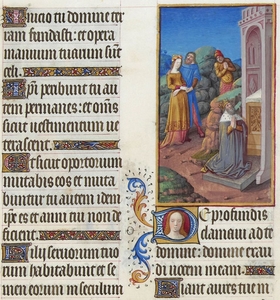 Inicio tu domine ter
ram fundasti: et opera
manuum tuarum sūt
celi.
Ipi peribunt tu au
tem permanes: et om̄s
sicut vestimentum ve
terascent.
Et sicut opertorium
mutabis eos et muta
buntur tu autem idem
ip̄e es et anni tui non de
ficient.
Filij servorum tuo
rum habitabunt et se
men eorum in seculum
De profundis
clamavi ad te
domine: domine exau
di vocem meam.
Fiant aures tue in